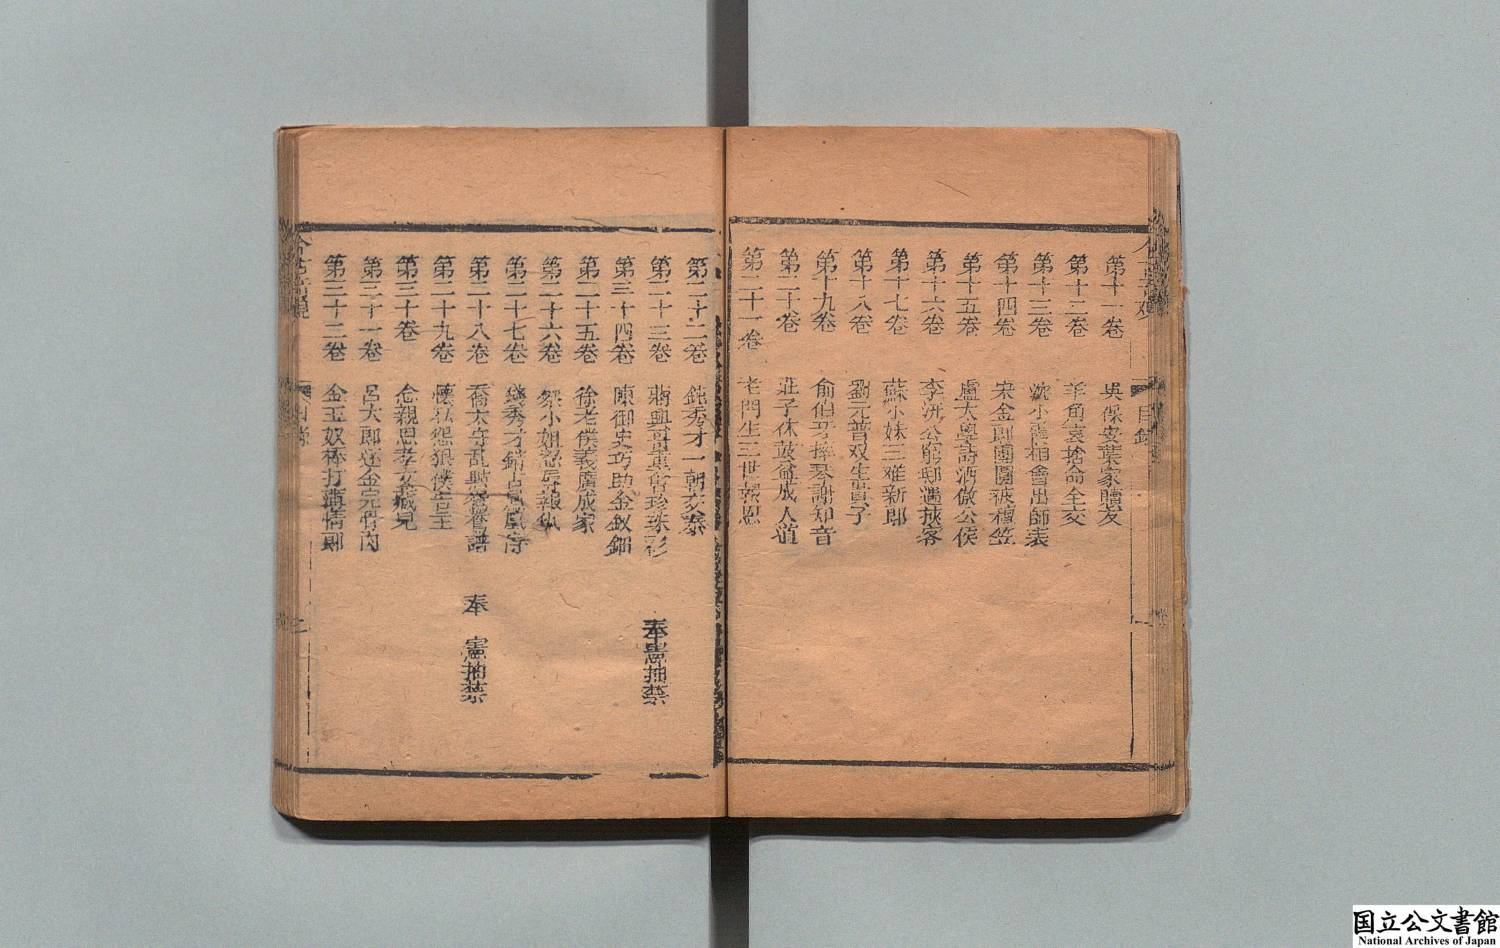 第十一卷 吳保安棄家贖友
第十二卷 羊角哀捨命全交
第十三卷 沈小霞相會出師表
第十四卷 宋金郎團圓破氊笠
第十五卷 盧太學詩酒傲公侯
第十六卷 李汧公窮邸遇俠客
第十七卷 蘇小妹三难新郎
第十八卷 劉元普双生貴子
第十九卷 俞伯牙摔琴謝知音
第二十卷 莊子休鼓盆成大道
第二十一卷 老門生三世報恩
第二十二卷 鈍秀才一朝交泰
第二十三卷 蔣興哥重會珍珠衫 奉憲抽禁
第三十四卷 陳御史巧勘金釵鈿
第二十五卷 徐老僕義廣成家
第二十六卷 蔡小姐忍辱報仇
第二十七卷 錢秀才錯占鳳凰俦
第二十八卷 喬太守乱點鴛鴦譜 奉憲抽禁
第二十九卷 懷私怨狠僕告主
第三十卷 念親恩孝女藏兒
第三十一卷 呂大郎還金完骨肉
第三十二卷 金玉奴棒打薄情郎
目錄
国立公文書館
National Archives of Japan